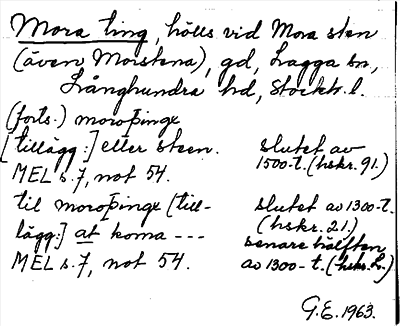 Mora ting, hölls vid Mora sten
(även Morstena), gd, Lagga sn,
Långhundra hd, Stockh. l.
(forts.) moroþinge
[tillägg:] eller steen. slutet av
1500-t. (hskr. 91.)
MEL s. 7, not 54.
til moroþinge [till- slutet av 1300-t.
lägg:] at koma --- (hskr. 21.)
senare hälften
MEL s. 7, not 54. av 1300-t. (hskr. L.)
G.E. 1963.